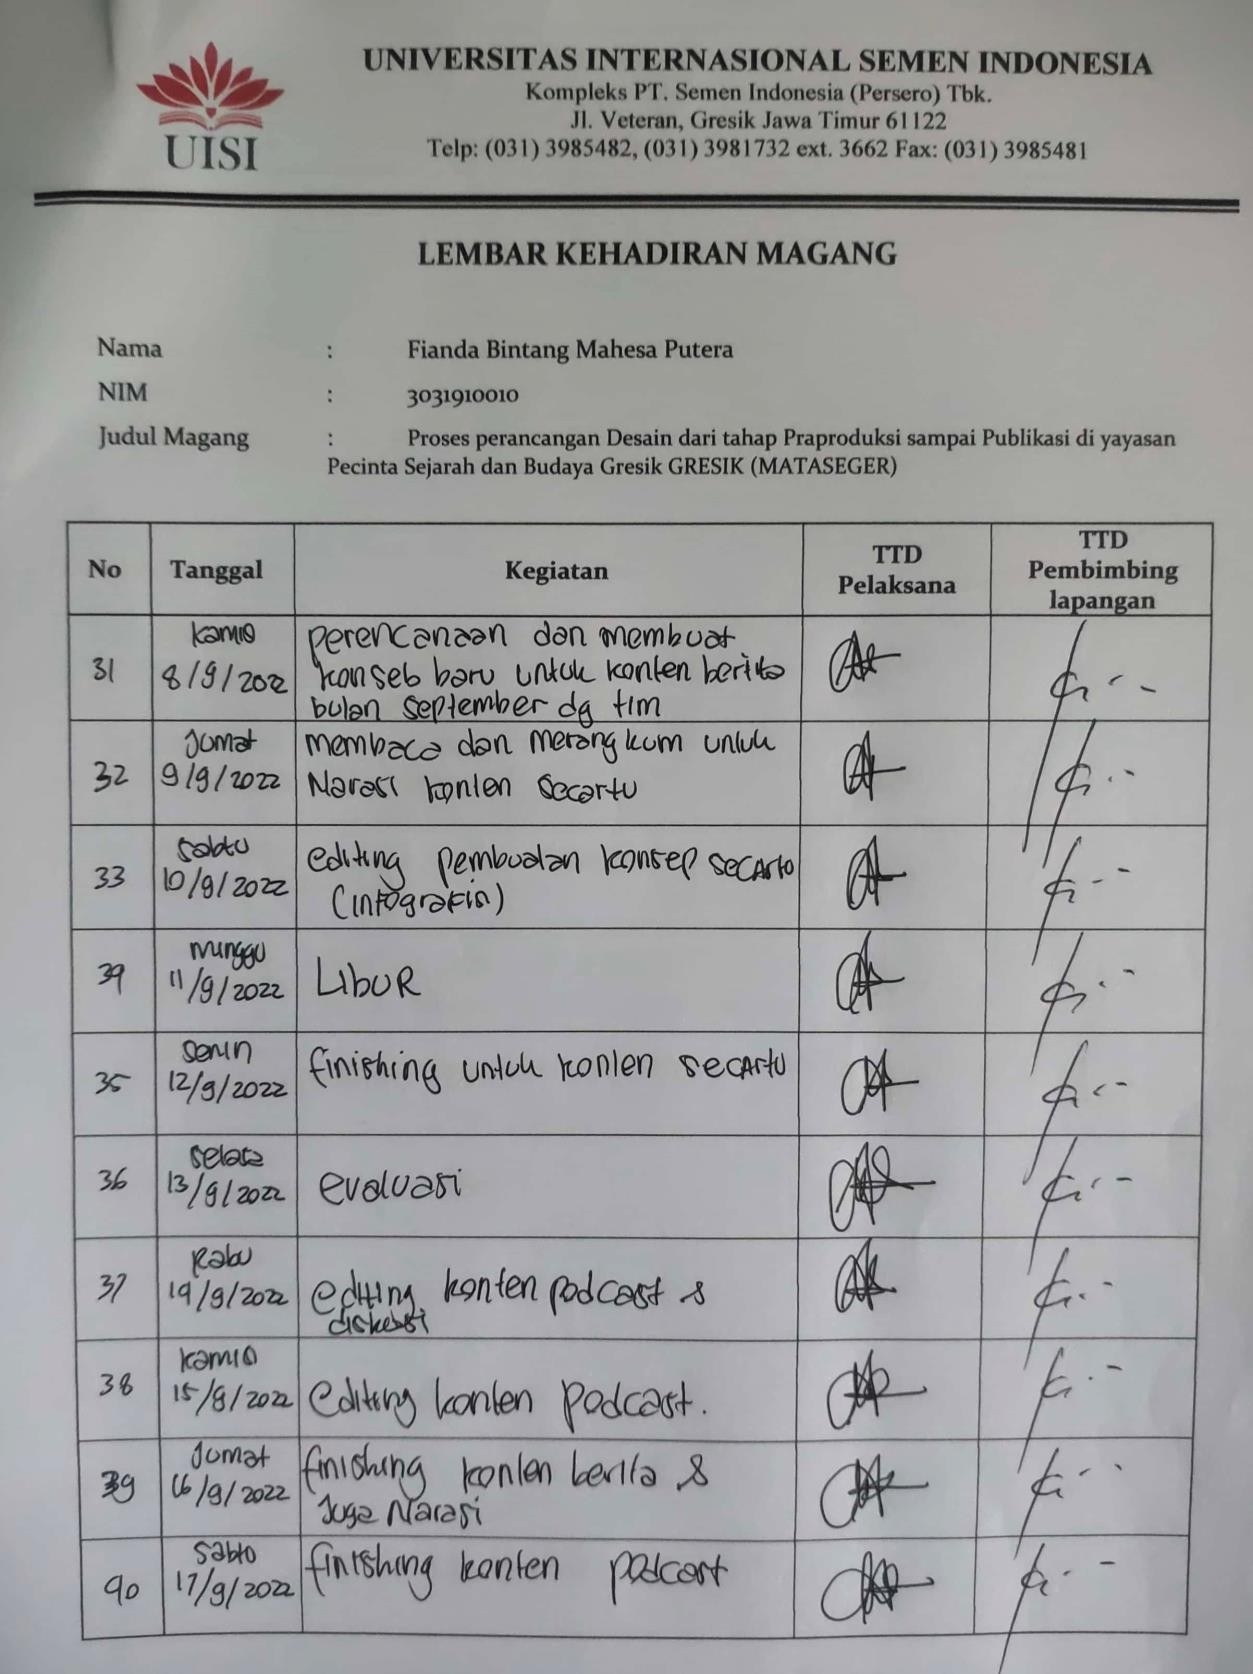 UISI
UNIVERSITAS INTERNASIONAL SEMEN INDONESIA
Kompleks PT. Semen Indonesia (Persero) Tbk.
Jl. Veteran, Gresik Jawa Timur 61122
Telp: (031) 3985482, (031) 3981732 ext. 3662 Fax: (031) 3985481
LEMBAR KEHADIRAN MAGANG
Nama : Fianda Bintang Mahesa Putera
NIM : 3031910010
Judul Magang : Proses perancangan Desain dari tahap Praproduksi sampai Publikasi di yayasan
Pecinta Sejarah dan Budaya Gresik GRESIK (MATASEGER)
No Tanggal Kegiatan TTD Pelaksana TTD Pembimbing lapangan
31 Kamis 8/9/2022 perencanaan dan membuat
konseb baru untuk konten berita
bulan september dg tim
32 Jumat 9/9/2022 membaca dan merangkum untuk
Narasi konten secartu
33 Sabtu 10/9/2022 editing pembuatan konsep secarto
(infografis)
34 minggu 11/9/2022 LIBUR
35 Senin 12/9/2022 finishing untuk konten secartu
36 Selasa 13/9/2022 evaluasi
37 Rabu 14/9/2022 editing konten podcast &
diskusi
38 Kamis 15/9/2022 editing konten podcast.
39 Jumat 16/9/2022 finishing konten berita &
Juga Narasi
40 Sabto 17/9/2022 finishing konten podcast